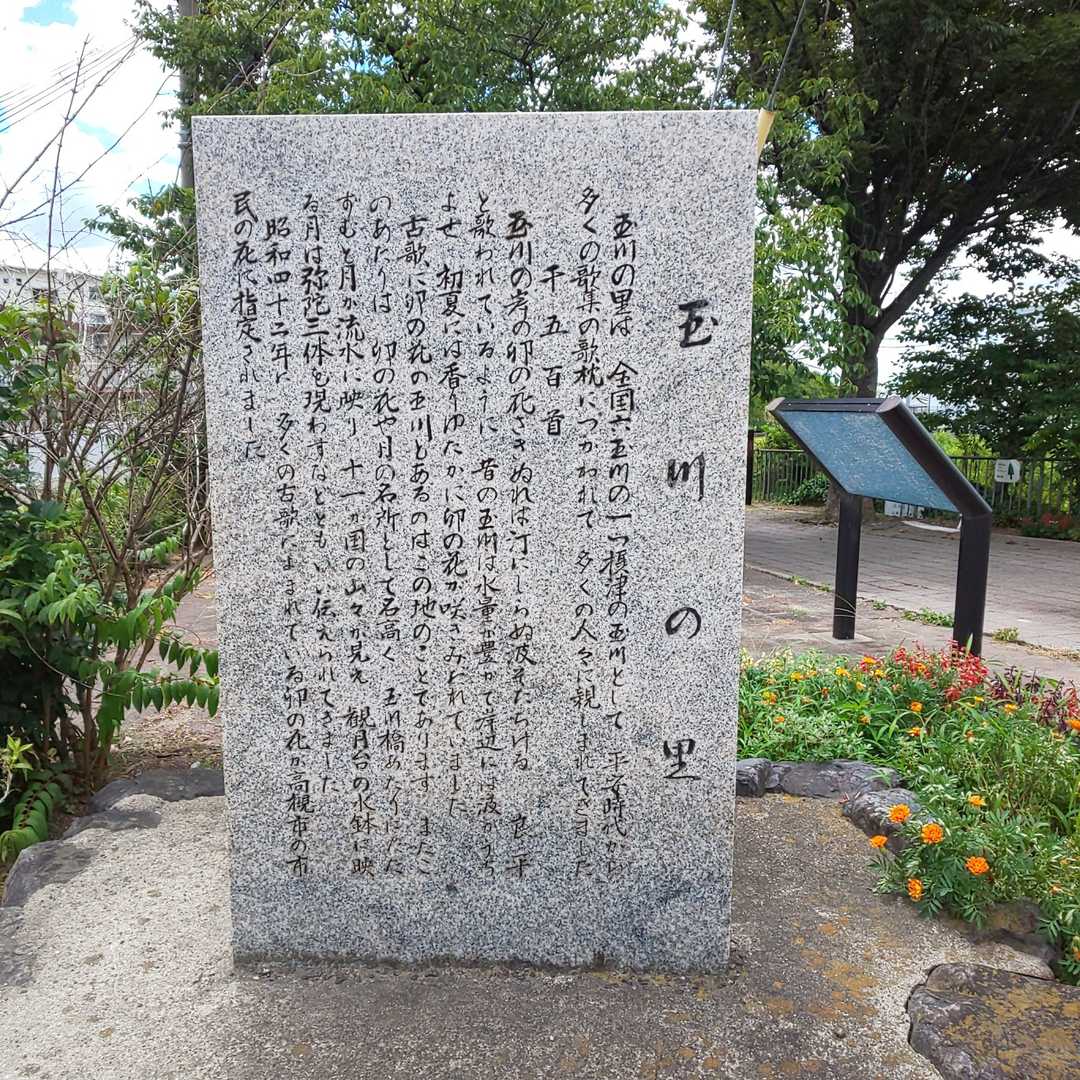 玉川の里
玉川の里は 全国六玉川の一つ摂津の玉川として 平安時代から
多くの歌集の歌枕につかわれて 多くの人々に親しまれてきました
千五百首
玉川の岸の卯の花さきぬれは汀にしらぬ波そたちける 良平
と歌われているように 昔の玉川は水量豊かで岸辺には波がうち
よせ 初夏には香りゆたかに卯の花が咲きみわれていました
古歌に卯の花の玉川とあるのはこの地のことであります またこ
のあたりは 卯の花や月の名所として名高く 玉川橋あたりにたた
ずむと月が流水に映り 十一か国の山々が見え 観月台の水鉢に映
る月は弥陀三体を現わすなどともいい伝えられてきました
昭和四十二年に 多くの古歌によまれている卯の花が高槻市の市
民の花に指定されました